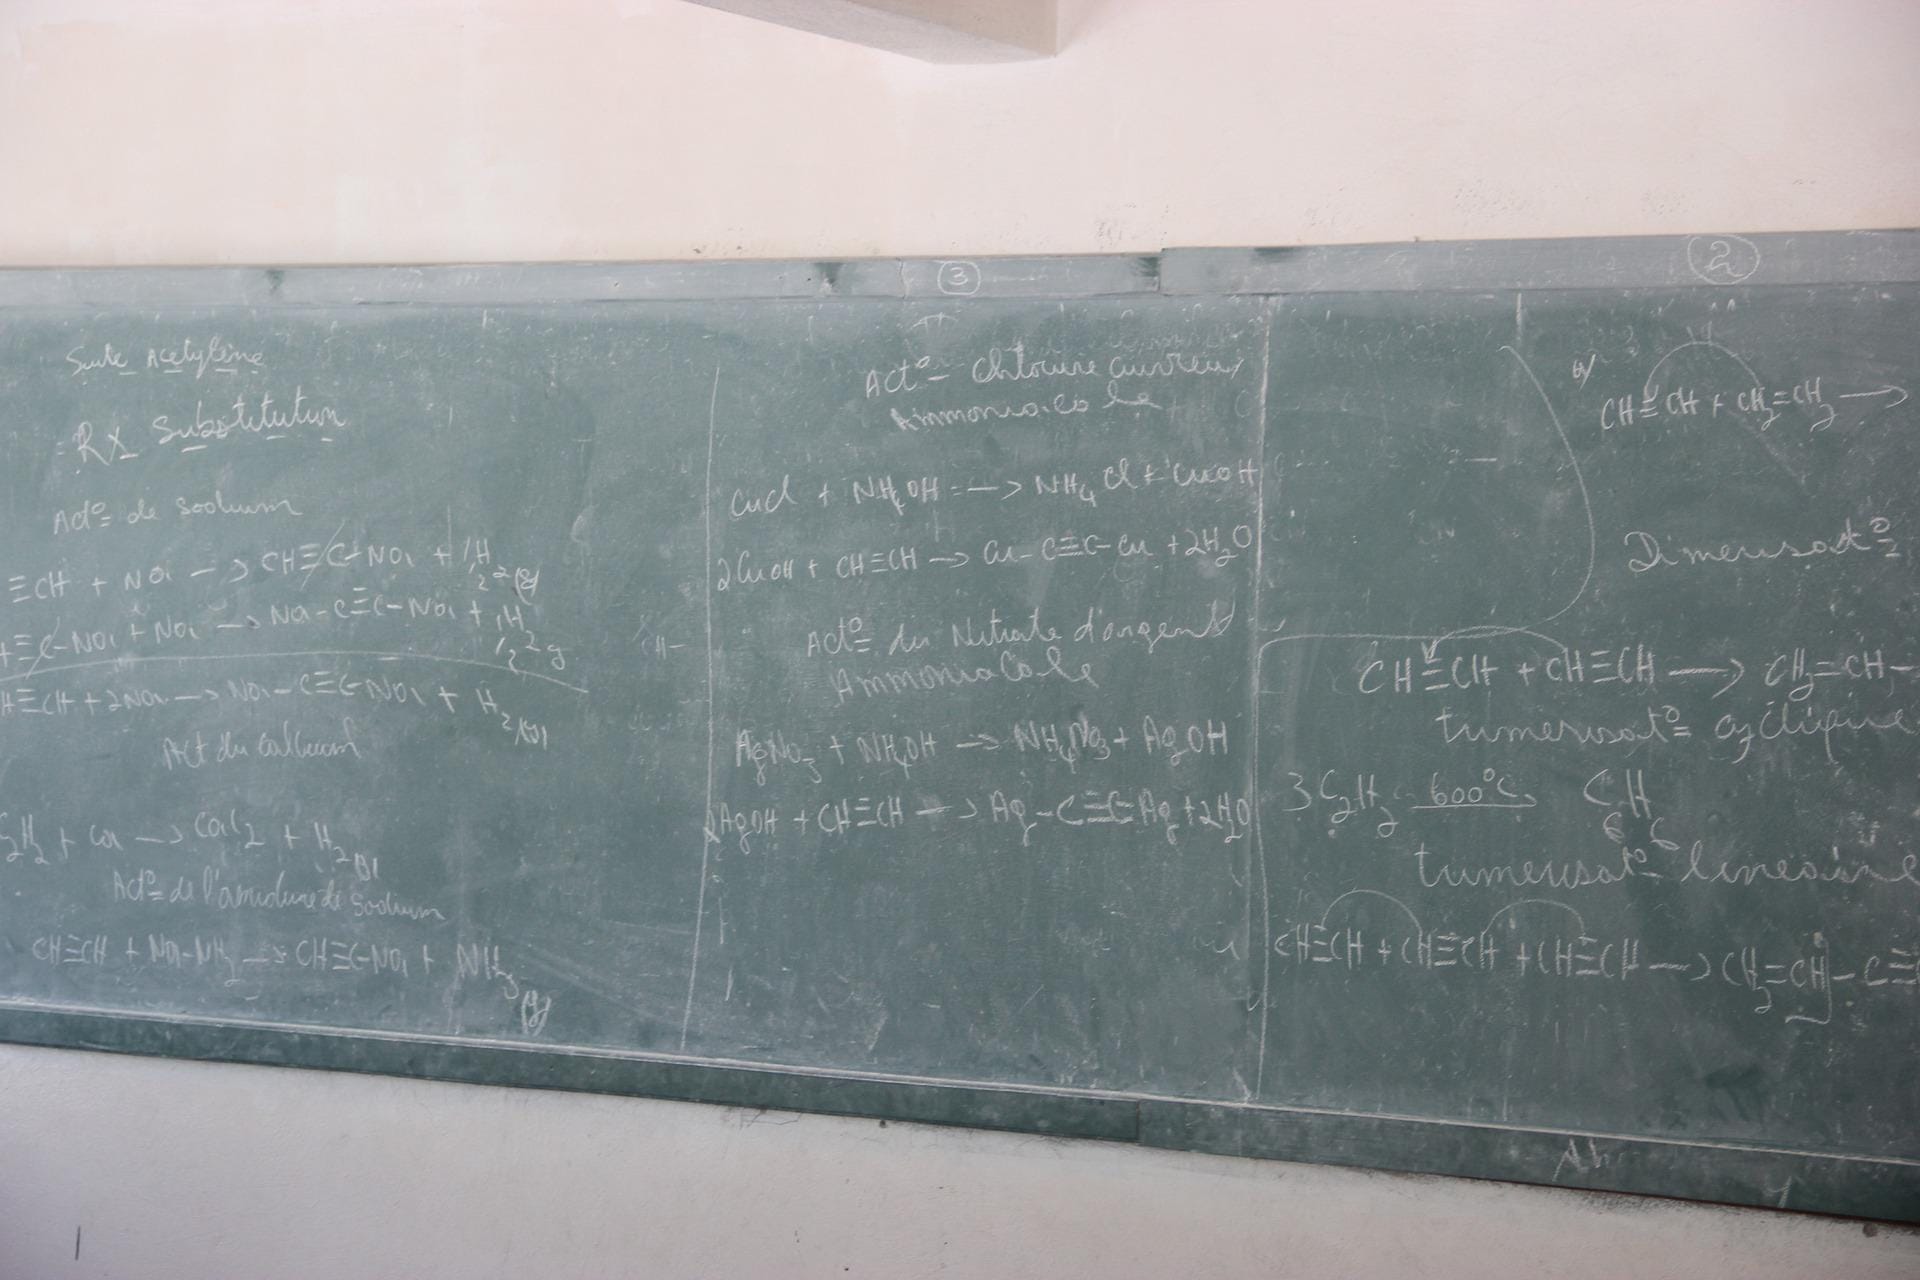 Suite Acetylène
RX Substitution
Act° de sodium
≡CH + Na → CH≡C-Na + 1/2 H2(g)
≡C-Na + Na → Na-C≡C-Na + 1/2 H2 g
H≡CH + 2Na → Na-C≡C-Na + H2(g)
Act du calcium
C2H2 + Ca → CaC2 + H2(g)
Act° de l'amidure de sodium
CH≡CH + Na-NH2 → CH≡C-Na + NH3(g)
3
Act° Chlorure cuivreux
Ammoniacale
CuCl + NH4OH → NH4Cl + CuOH
2CuOH + CH≡CH → Cu-C≡C-Cu + 2H2O
Act° du Nitrate d'argent
Ammoniacale
AgNO3 + NH4OH → NH4NO3 + AgOH
2AgOH + CH≡CH → Ag-C≡C-Ag + 2H2O
2
a/
CH≡CH + CH2=CH2 →
Dimerisat°
CH≡CH + CH≡CH → CH2=CH-
trimerisat° cyclique
3C2H2 600°C → C6H6
trimerisat° lineaire
CH≡CH + CH≡CH + CH≡CH → CH2=CH]-C≡